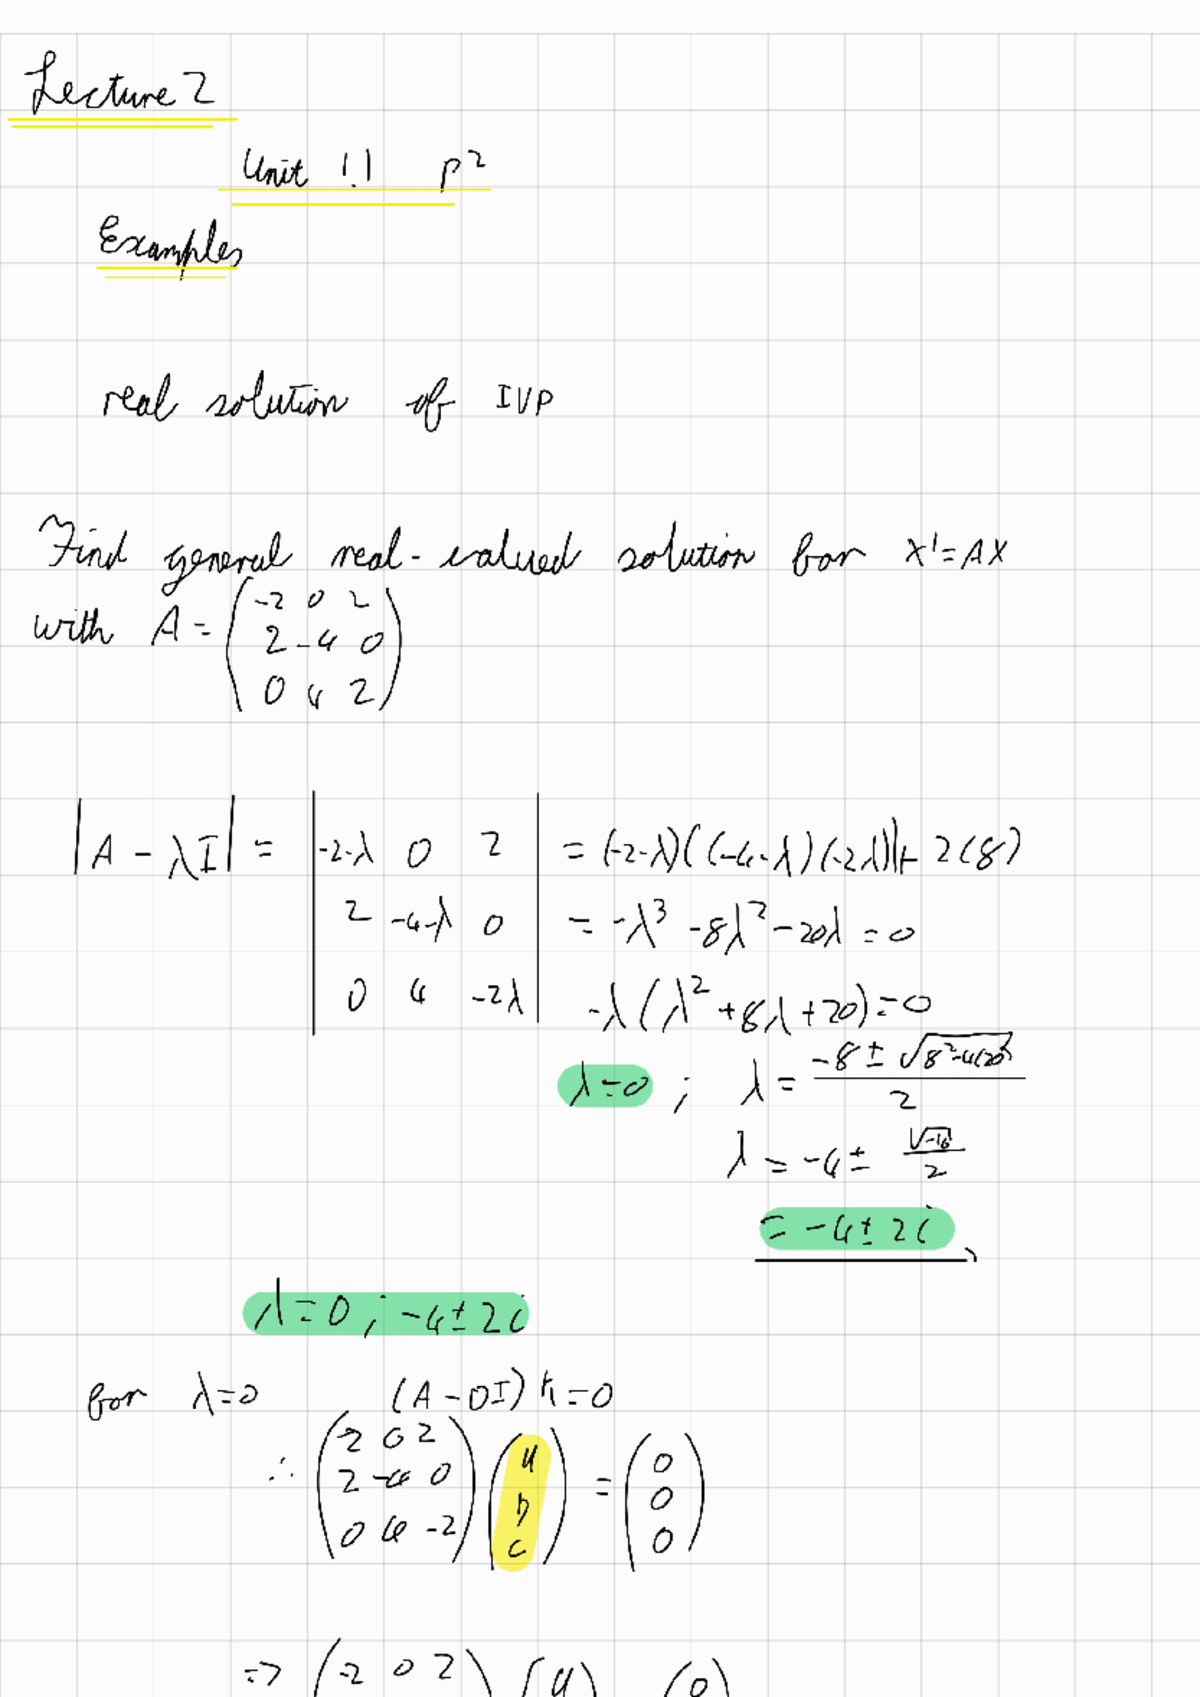 Lecture 2
Unit 1.1 p2
Examples
real solution of IVP
Find general real-valued solution for X'=AX
with A = (-2 0 2
2 -4 0
0 4 2)
|A - λI| = |-2-λ 0 2
2 -4-λ 0
0 4 -2λ|
= (-2-λ)((-4-λ)(-2λ)) + 2(8)
= -λ³ - 8λ² - 20λ = 0
-λ(λ² + 8λ + 20) = 0
λ=0 ; λ = (-8 ± √(8²-4(20)))/2
λ = -4 ± √-16/2
= -4 ± 2i
λ=0 ; -4 ± 2i
for λ=0 (A - 0I) K = 0
∴ (-2 0 2
2 -4 0
0 4 -2) (a
b
c) = (0
0
0)
=> (-2 0 2) (a) (0)